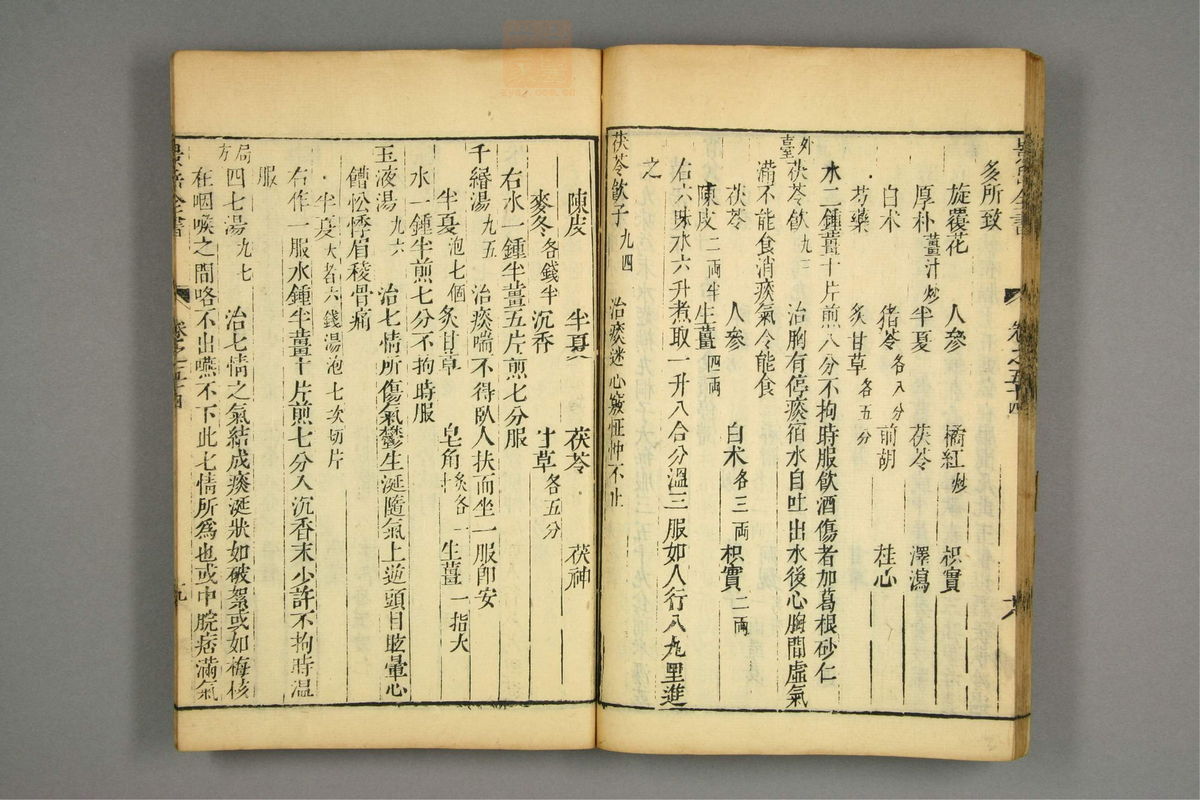 多所致
旋覆花 人參 橘紅炒 枳實
厚朴薑汁炒 半夏 茯苓 澤瀉
白术 猪苓各八分 前胡 桂心
芍藥 炙甘草各五分
水二鍾薑十片煎八分不拘時服飲酒傷者加葛根砂仁
外臺茯苓飲九三 治胸有停痰宿水自吐出水後心胸間虛氣
滿不能食消痰氣令能食
茯苓 人參 白术各三兩 枳實二兩
陳皮二兩半 生薑四兩
右六味水六升煮取一升八合分溫三服如人行八九里進
之
茯苓飲子九四 治痰迷心竅怔忡不止
陳皮 半夏 茯苓 茯神
麥冬各錢半 沉香 甘草各五分
右水一鍾半薑五片煎七分服
千緡湯九五 治痰喘不得臥人扶而坐一服即安
半夏泡七個 炙甘草 皂角炙各一寸 生薑一指大
水一鍾半煎七分不拘時服
玉液湯九六 治七情所傷氣鬱生涎隨氣上逆頭目眩暈心
饣曹忪悸眉稜骨痛
半夏大者六錢湯泡七次切片
右作一服水鍾半薑十片煎七分入沉香末少許不拘時溫
服
局方四七湯九七 治七情之氣結成痰涎狀如破絮或如梅核
在咽喉之間咯不出嚥不下此七情所爲也或中脘痞滿氣
景岳全書 卷之五十四 九